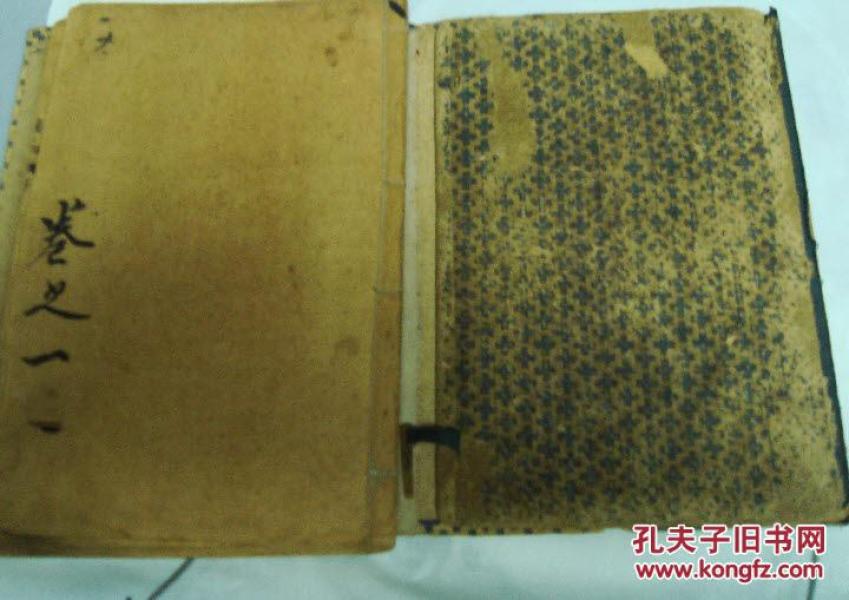 卷之一
孔夫子旧书网
www.kongfz.com